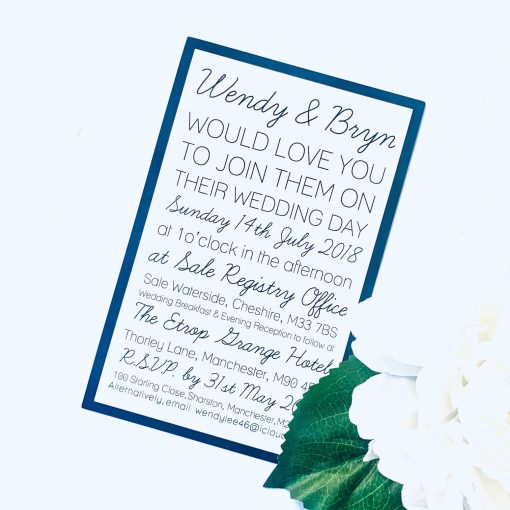 Wendy & Bryn
WOULD LOVE YOU
TO JOIN THEM ON
THEIR WEDDING DAY
Sunday 14th July 2018
at 1o'clock in the afternoon
at Sale Registry Office
Sale Waterside, Cheshire, M33 7BS
Wedding Breakfast & Evening Reception to follow at
The Etrop Grange Hotel
Thorley Lane, Manchester, M90
R.S.V.P. by 31st May
100 Starling Close, Sharston, Manchester,
Alternatively, email wendylee46@icloud